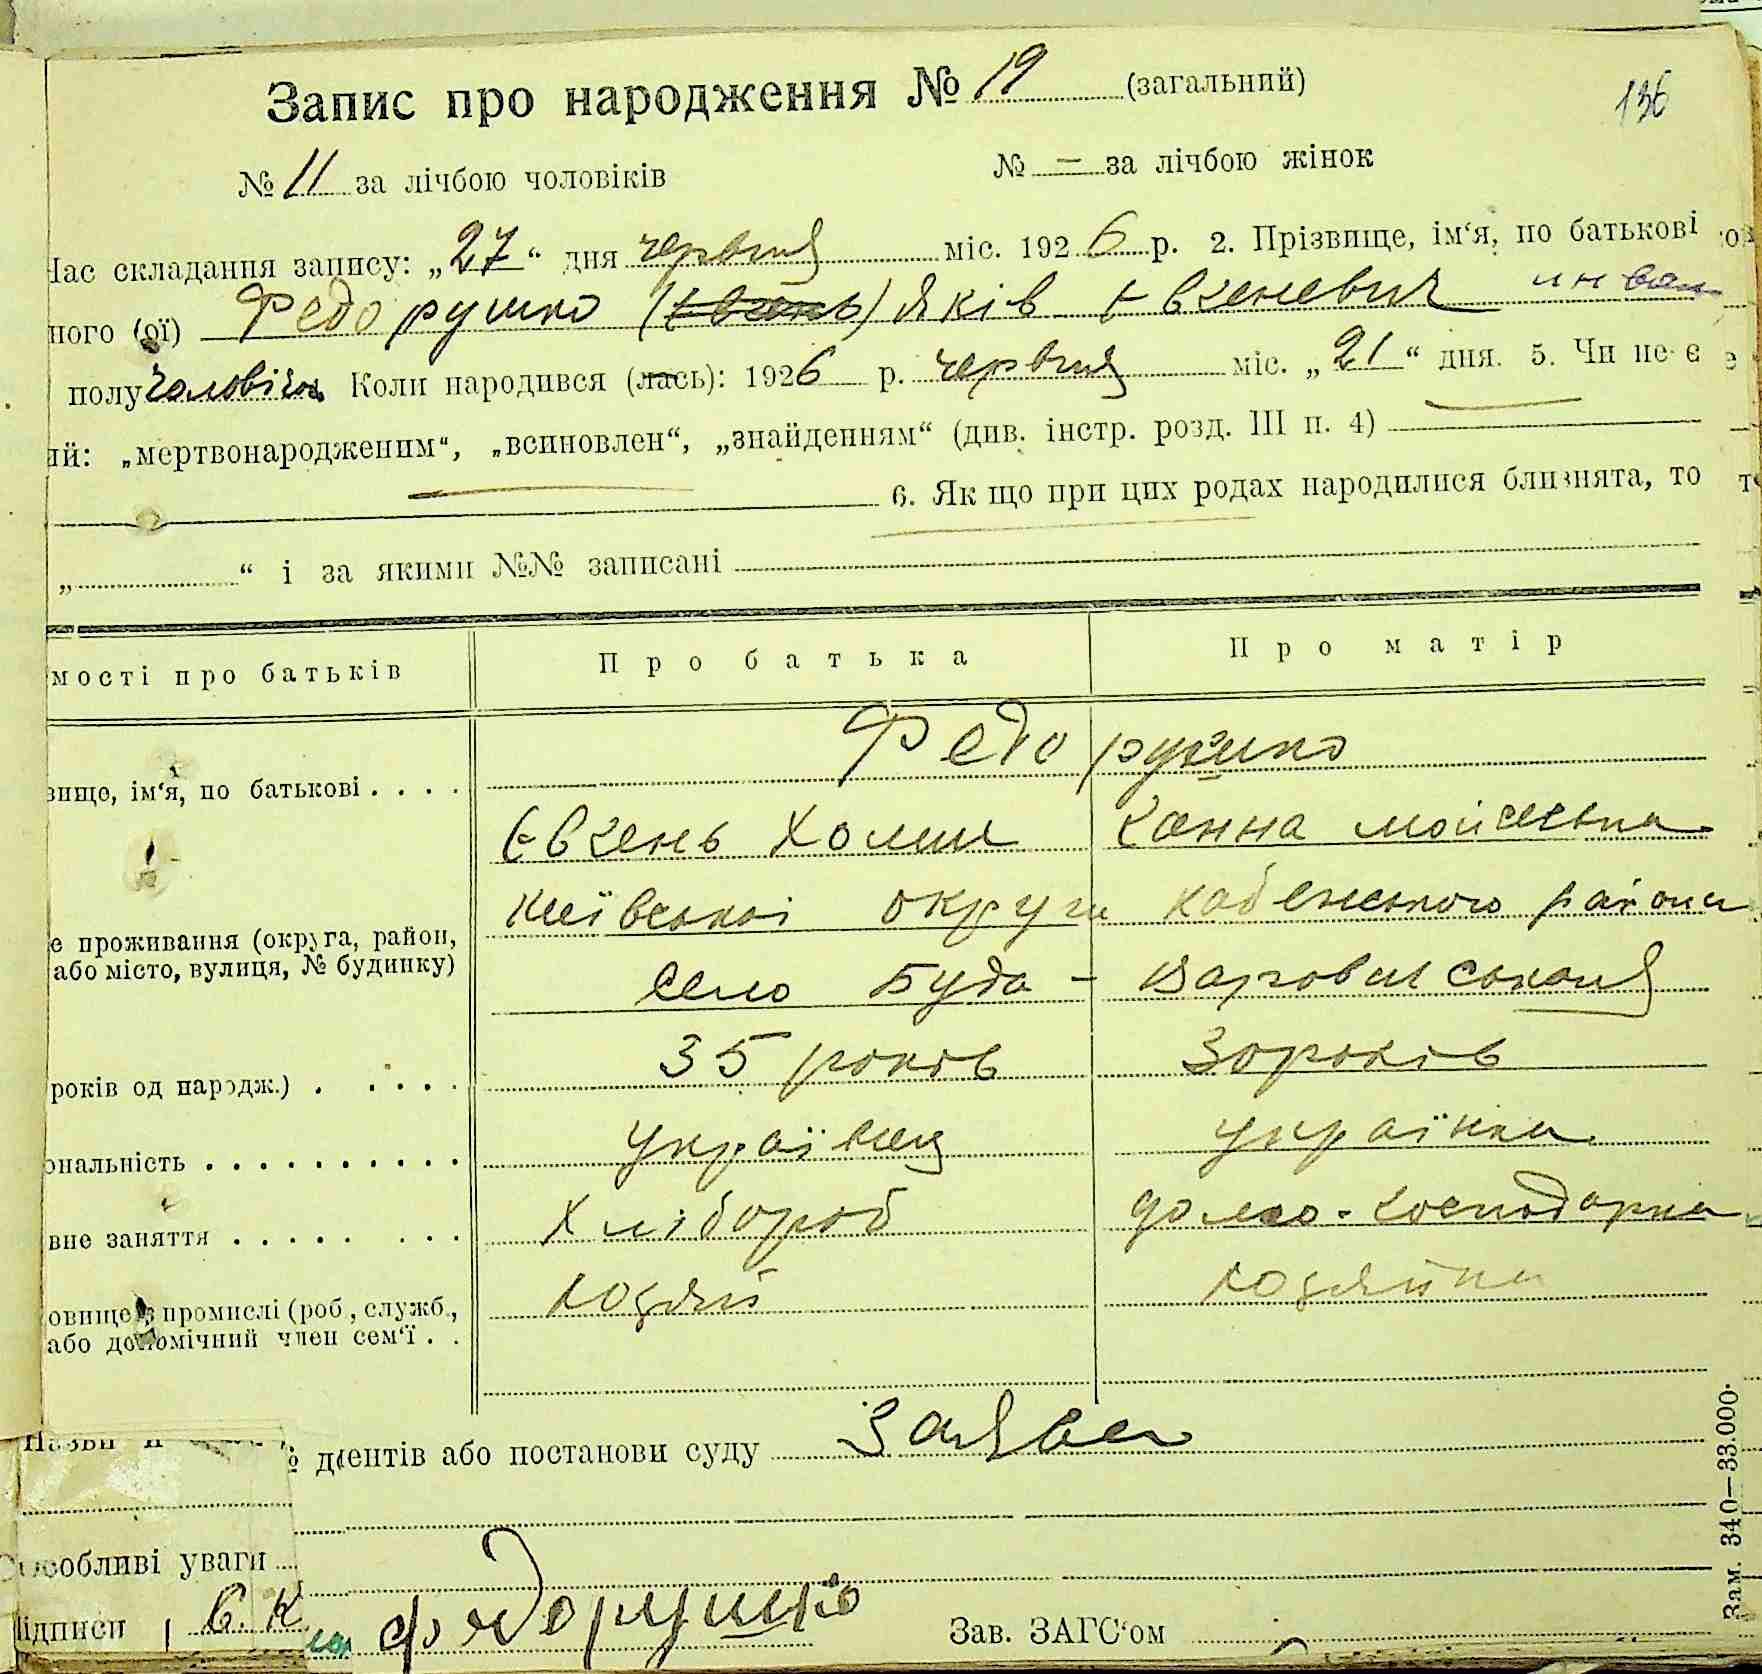 Запис про народження № 19 (загальний)
136
№ 11 за лічбою чоловіків № — за лічбою жінок
Час складання запису: „27“ дня червня міс. 1926 р. 2. Прізвище, ім‘я, по батькові
ного (ої) Федорушко (Євгень) Яків Євгеневич
полу чоловіч. Коли народився (лась): 1926 р. червня міс. „21“ дня. 5. Чи не є
ий: „мертвонародженим“, „всиновлен“, „знайденням“ (див. інстр. розд. III п. 4)
6. Як що при цих родах народилися близнята, то
„ “ і за якими №№ записані
мості про батьків Про батька Про матір
Федорушко
вище, ім‘я, по батькові . . . .
Євгень Хомич Ганна Мойсеєвна
Київської округи Кабенського района
е проживання (округа, район,
або місто, вулиця, № будинку)
село Буда - Варовицькая
років од народж.) . . . . . 35 років 30 років
ональність . . . . . . . . . . українец українка
вне заняття . . . . . . . . хлібороб домо-господарка
хозяїн хозяйка
овище в промислі (роб., служб.,
або допомічний член сем‘ї . .
Назви й
№ д ентів або постанови суду Заява
Особливі уваги
ідписи Є. Х. Федорушко Зав. ЗАГС‘ом
Зам. 340—33.000.